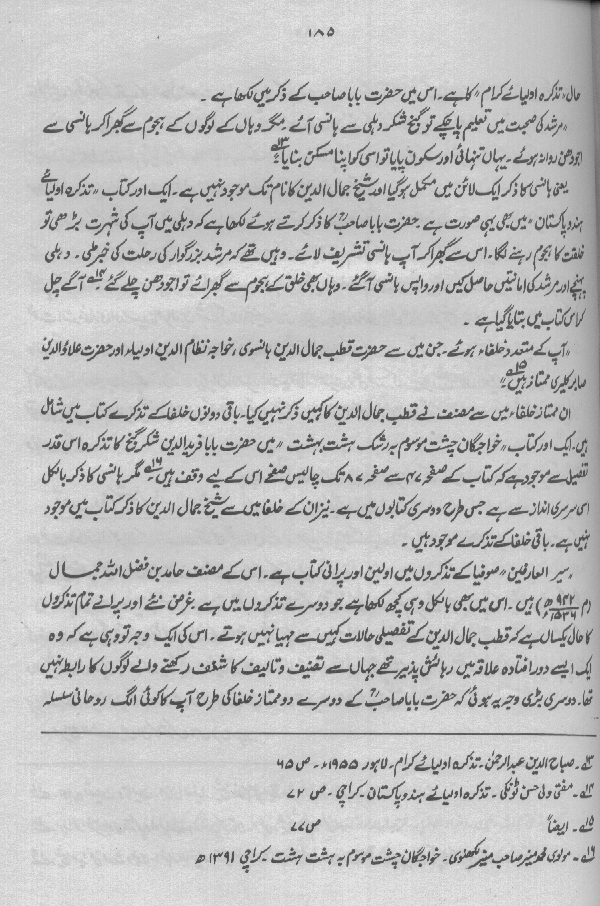 ۱۸۵
حال ”تذکرہ اولیائے کرام“ کا ہے۔ اس میں حضرت بابا صاحب کے ذکر میں لکھا ہے۔
”مرشد کی صحبت میں تعلیم پا چکے تو گنج شکر دہلی سے ہانسی آئے۔ مگر وہاں کے لوگوں کے ہجوم سے گھبرا کر ہانسی سے
اجودھن روانہ ہوئے۔ یہاں تنہائی اور سکون پایا تو اسی کو اپنا مسکن بنایا“ ۱۳؎
یعنی ہانسی کا ذکر ایک لائن میں مکمل ہو گیا اور شیخ جمال الدین کا نام تک موجود نہیں ہے۔ ایک اور کتاب ”تذکرہ اولیائے
ہند و پاکستان“ میں بھی یہی صورت ہے۔ حضرت بابا صاحبؒ کا ذکر کرتے ہوئے لکھا ہے کہ دہلی میں آپ کی شہرت بڑھی تو
خلقت کا ہجوم رہنے لگا۔ اس سے گھبرا کر آپ ہانسی تشریف لائے۔ وہیں تھے کہ مرشد بزرگوار کی رحلت کی خبر ملی۔ دہلی
پہنچے اور مرشد کی امانتیں حاصل کیں اور واپس ہانسی آ گئے۔ وہاں بھی خلق کے ہجوم سے گھبرائے تو اجودھن چلے گئے۔ ۱۴؎ آگے چل
کر اس کتاب میں بتایا گیا ہے۔
”آپ کے متعدد خلفاء ہوئے۔ جن میں سے حضرت قطب جمال الدین ہانسوی، خواجہ نظام الدین اولیاء اور حضرت علاؤ الدین
صابر کلیری ممتاز ہیں“ ۱۵؎
ان ممتاز خلفاء میں سے مصنف نے قطب جمال الدین کا کہیں ذکر نہیں کیا۔ باقی دونوں خلفا کے تذکرے کتاب میں شامل
ہیں۔ ایک اور کتاب ”خواجگان چشت موسوم بہ رشک ہشت بہشت“ میں حضرت بابا فرید الدین شکر گنج کا تذکرہ اس قدر
تفصیل سے موجود ہے کہ کتاب کے صفحہ ۴۷ سے صفحہ ۸۷ تک چالیس صفحے اس کے لیے وقف ہیں۔ ۱۶؎ مگر ہانسی کا ذکر بالکل
اسی سرسری انداز سے ہے جس طرح دوسری کتابوں میں ہے۔ نیز ان کے خلفا میں سے شیخ جمال الدین کا ذکر کتاب میں موجود
نہیں ہے۔ باقی خلفا کے تذکرے موجود ہیں۔
”سیر العارفین“ صوفیا کے تذکروں میں اولین اور پرانی کتاب ہے۔ اس کے مصنف حامد بن فضل اللہ جمالی
(م ۹۴۲ھ / ۱۵۳۶ء) ہیں۔ اس میں بھی بالکل وہی کچھ لکھا ہے جو دوسرے تذکروں میں ہے۔ غرض نئے اور پرانے تمام تذکروں
کا حال یکساں ہے کہ قطب جمال الدین کے تفصیلی حالات کہیں سے مہیا نہیں ہوتے۔ اس کی ایک وجہ تو وہی ہے کہ وہ
ایک ایسے دور افتادہ علاقہ میں رہائش پذیر تھے جہاں سے تصنیف و تالیف کا شغف رکھنے والے لوگوں کا رابطہ نہیں
تھا۔ دوسری بڑی وجہ یہ ہوئی کہ حضرت بابا صاحبؒ کے دوسرے دو ممتاز خلفا کی طرح آپ کا کوئی الگ روحانی سلسلہ
۱۳؎۔ صباح الدین عبدالرحمٰن۔ تذکرہ اولیائے کرام۔ لاہور ۱۹۵۵ء۔ ص ۶۵
۱۴؎۔ مفتی ولی حسن ٹونکی۔ تذکرہ اولیائے ہند و پاکستان۔ کراچی۔ ص ۷۲
۱۵؎۔ ایضاً ص ۷۷
۱۶؎۔ مولوی محمد منیر صاحب منیر لکھنوی۔ خواجگان چشت موسوم بہ ہشت بہشت۔ کراچی ۱۳۹۱ھ